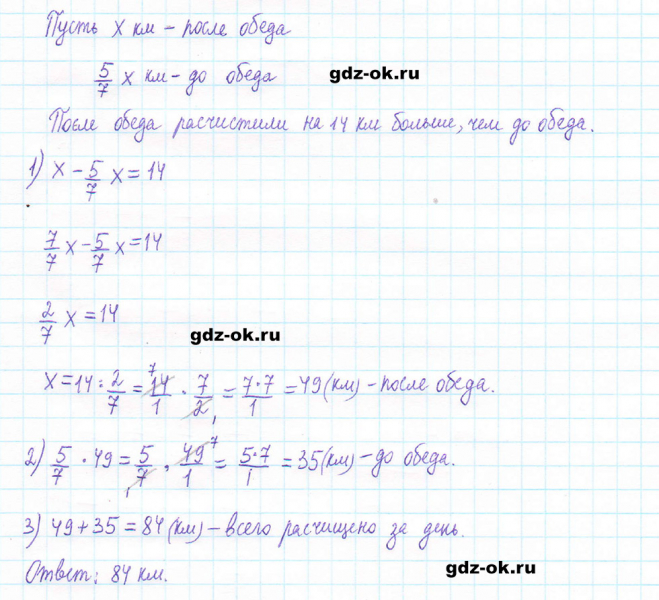 Пусть x км – после обеда
5/7 x км – до обеда gdz-ok.ru
После обеда расчистили на 14 км больше, чем до обеда.
1) x – 5/7 x = 14
7/7 x – 5/7 x = 14
2/7 x = 14
gdz-ok.ru
x = 14 : 2/7 = 14/1 · 7/2 = 7·7/1 = 49 (км) – после обеда.
2) 5/7 · 49 = 5/7 · 49/1 = 5·7/1 = 35 (км) – до обеда.
3) 49 + 35 = 84 (км) – всего расчищено за день.
Ответ: 84 км.
gdz-ok.ru